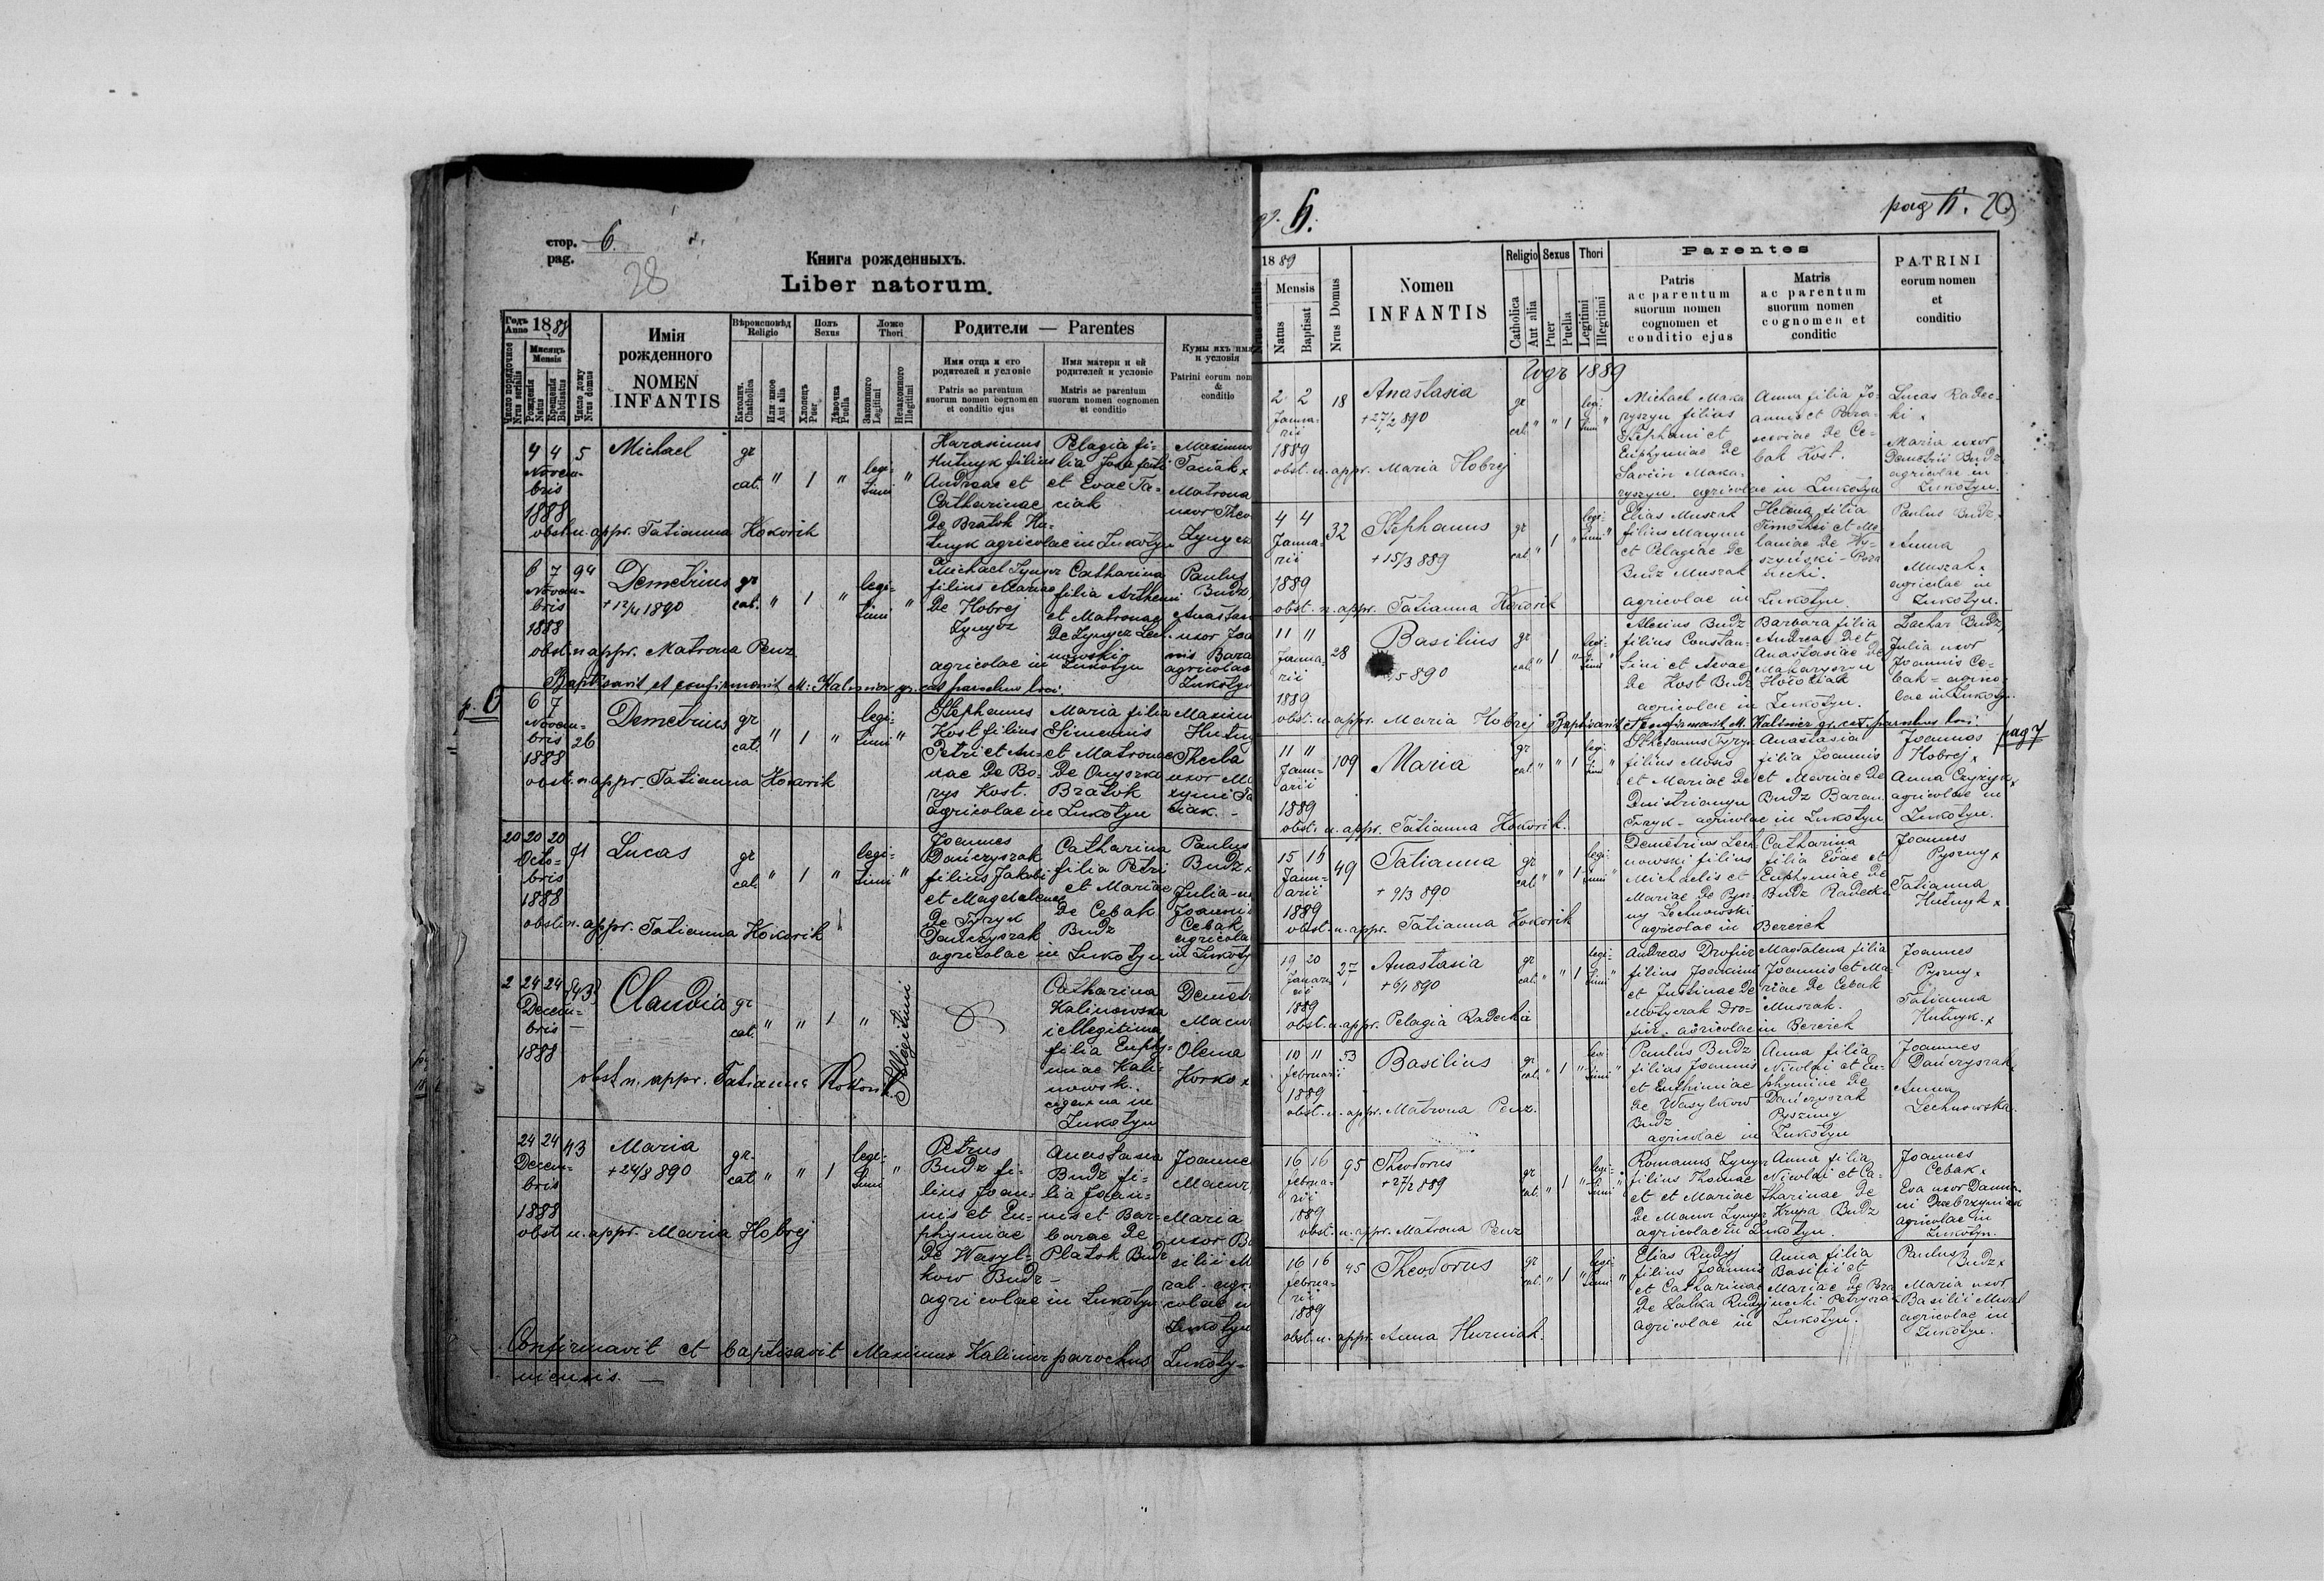 стор. 6.
pag.
28
Книга рожденныхъ.
Liber natorum.
Годъ Anno 1888
Число порядочное Nrus serialis
Мѣсяцъ Mensis
Рожденія Natus
Крещенія Baltisatus
Число дому Nrus domus
Имія рожденного
NOMEN INFANTIS
Вѣроисповѣд Religio
Католич. Chatholica
Или ине Aut alia
Полъ Sexus
Хлопецъ Puer
Дѣвочка Puella
Ложе Thori
Законного Legitimi
Незаконного Illegitimi
Родители — Parentes
Имя отца и его родителей и условіе
Patris ac parentum suorum nomen cognomen et conditio ejus
Имя матери и ей родителей и условіе
Matris ac parentum suorum nomen cognomen et conditio
Кумы ихъ имя и условія
Patrini eorum nom & conditio
4 4 5 Michael gr cat. " 1 " legitimi "
Novembris
1888
Harasimus
Hutnyk filius
Andreae et
Catharinae
de Bratok Hu-
tnyk agricolae in Lukotyn
Pelagia fi-
lia Josafati
et Evae Ta-
ciak
Maximus
Taciak x
Matrona
uxor Theo
Zynycz
obst. n. appr. Tatianna Kokorik
6 7 94 Demetrius gr cat. " 1 " legitimi "
Novembris
+ 12/4 1890
1888
Michael Zynycz
filius Mariae
de Hobrej
Zynycz
Catharina
filia Arthemi
et Matronae
de Zynycz Lech-
nowski
agricolae in Lukotyn
Paulus
Budz.
Anastas
uxor Joa
nnis Bara
agricolae
Lukotyn
obst. n. appr. Matrona Penz.
Baptisavit et confirmavit M. Kalimor gr. cat parochus loci.
p. 6
6 7 26 Demetrius gr cat. " 1 " legitimi "
Novembris
1888
Stephanus
Kost filius
Petri et An-
nae de Bo-
rys Kost.
agricolae in Lukotyn
Maria filia
Simeonis
et Matronae
de Onyszko
Bratok
Maxim
Hutny
Thecla
uxor Ma
xymi Ta
ciak. -
obst. n. appr. Tatianna Kokorik
20 20 20 71 Lucas gr cat. " 1 " legitimi "
Octobris
1888
Joannes
Dańczyszak
filius Jakobi
et Magdalenae
de Tyzyk
Dańczyszak
agricolae in Lukotyn
Catharina
filia Petri
et Mariae
de Cebak
Budz
Paulus
Budz x
Julia - u
Joanni
Cebak
agricola
in Lukoty
obst. n. appr. Tatianna Kokorik
2 24 24 Claudia gr cat. " " 1 " Illegitimi
Decembris
1888
Catharina
Kalinowska
illegitima
filia Euphy-
miae Kali-
nowsk.
Lukotyn
Demetr
Macur
Olena
Korko x
obst. n. appr. Tatianna Kokorik.
24 24 43 Maria gr. cat " " 1 legitimi "
Decembris
+ 24/8 890
1888
Petrus
Budz fi-
lius Joan-
nis et Eu-
phymiae
de Wasyl-
kow Budz -
agricolae in Lukotyn
Anastasia
Budz fi-
lia Joan-
nis et Bar-
barae de
Platok Budz
Joanne
Macur
Maria
uxor Ba
silii M
obst. n. appr. Maria Hobrej
Confirmavit et baptisavit Maximus Kalimor parochus Lukoty-
niensis. —
pag. 29
1889
Nrus serialis
Mensis
Natus
Baptisat
Nrus Domus
Nomen
INFANTIS
Religio
Catholica
Aut alia
Sexus
Puer
Puella
Thori
Legitimi
Illegitimi
Parentes
Patris
ac parentum
suorum nomen
cognomen et
conditio ejus
Matris
ac parentum
suorum nomen
cognomen et
conditic
PATRINI
eorum nomen
et
conditio
1889
2 2 18 Anastasia gr cat " " 1 legitimi "
Januarii
+ 27/2 890
1889
Michael Maka
ryszyn filius
Stephani et
Euphymiae de
Savcin Maka-
ryszyn. agricolae in Lukotyn
Anna filia Jo-
annis et Para-
sceviae de Ce-
bak Kost.
Lucas Radec-
ki x
Maria uxor
Demetrii Budz
agricolae in
Lukotyn.
obst. n. appr. Maria Hobrej
4 4 32 Stephanus gr cat. " 1 " legitimi "
Januarii
+ 15/3 889
1889
Elias Muszak
filius Maxymi
et Pelagiae de
Budz Muszak
agricolae in Lukotyn.
Helena filia
Timothei et Me-
laniae de Wy-
szyński -
Paulus Budz.
Anna
Muszak x
agricolae in
Lukotyn.
obst. n. appr. Tatianna Kokorik
11 11 28 Basilius gr cat " 1 " legitimi "
Januarii
5 890
1889
Alexius Budz
filius Constan-
tini et Aevae
de Kost Budz
agricolae in Lukotyn.
Barbara filia
Andreae et
Anastasiae de
Makaryszyn
Hołotiak
Zachar Budz,
Julia uxor
Joannis Ce-
bak = agrico-
lae in Lukotyn.
obst. n. appr. Maria Hobrej Baptisavit et confirmavit M. Kalimor gr. cat. parochus loci
pag 7
11 11 109 Maria gr cat. " " 1 legitimi "
Januarii
1889
Sthefanus Tyzyk
filius Mosis
et Mariae de
Dmistrianyn
Tzyk - agricolae in Lukotyn
Anastasia
filia Joannis
et Mariae de
Budz Baran.
Joannes
Hobrej x
Anna Czyzyk x
agricolae in
Lukotyn.
obst. n. appr. Tatianna Kokorik.
15 15 49 Tatianna gr cat " " 1 legitimi "
Januarii
+ 9/3 890
1889
Demetrius Lech-
nowski filius
Michaelis et
Mariae de Pysz-
ny Lechnowski
agricolae in Berezek
Catharina
filia Evae et
Euphymiae de
Budz Radecki
Joannes
Pyszny x
Tatianna
Hutnyk x
obst. n. appr. Tatianna Kokorik
19 20 27 Anastasia gr cat. " " 1 legitimi "
Januarii
+ 6/1 890
1889
Andreas Droficz
filius Joakimi
et Justinae de
Motyczak Dro-
ficz. agricolae in Berezek
Magdalena filia
Joannis et Ma-
riae de Cebak
Muszak.
Joannes
Pyszny x
Tatianna
Hutnyk. x
obst. n. appr. Pelagia Radecka
10 11 53 Basilius gr cat. " 1 " legitimi "
februarii
1889
Paulus Budz
filius Joannis
et Euthimiae
de Wasylkow
Budz
agricolae in Lukotyn
Anna filia
Nicolai et Eu-
phymiae de
Dańczyszak
Pyszny
Joannes
Dańczyszak
Anna
Lechnowska.
obst. n. appr. Matrona Penz.
16 16 95 Theodorus gr cat. " 1 " legitimi "
februarii
+ 27/2 889
1889
Romanus Zynycz
filius Thomae
et et Mariae
de Macur Zynycz
agricolae in Lukotyn.
Anna filia
Nicolai et Ca-
tharinae de
Krupa Budz
Joannes
Cebak x
Eva uxor Damia-
ni Dzebrzyniak
agricolae in
Lukotyn.
obst. n. appr. Matrona Penz
16 16 45 Theodorus gr cat. " 1 " legitimi "
februarii
1889
Elias Rudyj
filius Joannis
et Catharinae
de Lalka Rudyj
agricolae in Lukotyn.
Anna filia
Basilii et
Mariae de
Paulus
Budz x
Maria uxor
Basilii Mural
agricolae in
Lukotyn.
obst. n. appr. Anna Hurniak.